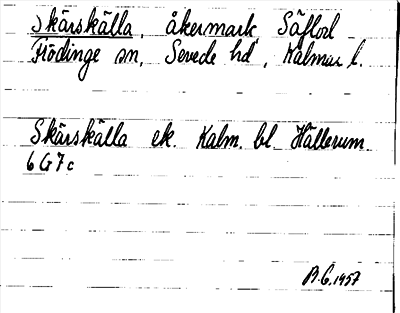 Skärskälla, åkermark Säflod
Frödinge sn, Sevede hd, Kalmar l.
Skärskälla ek. Kalm. bl. Hällerum
6G7c
B.G. 1957